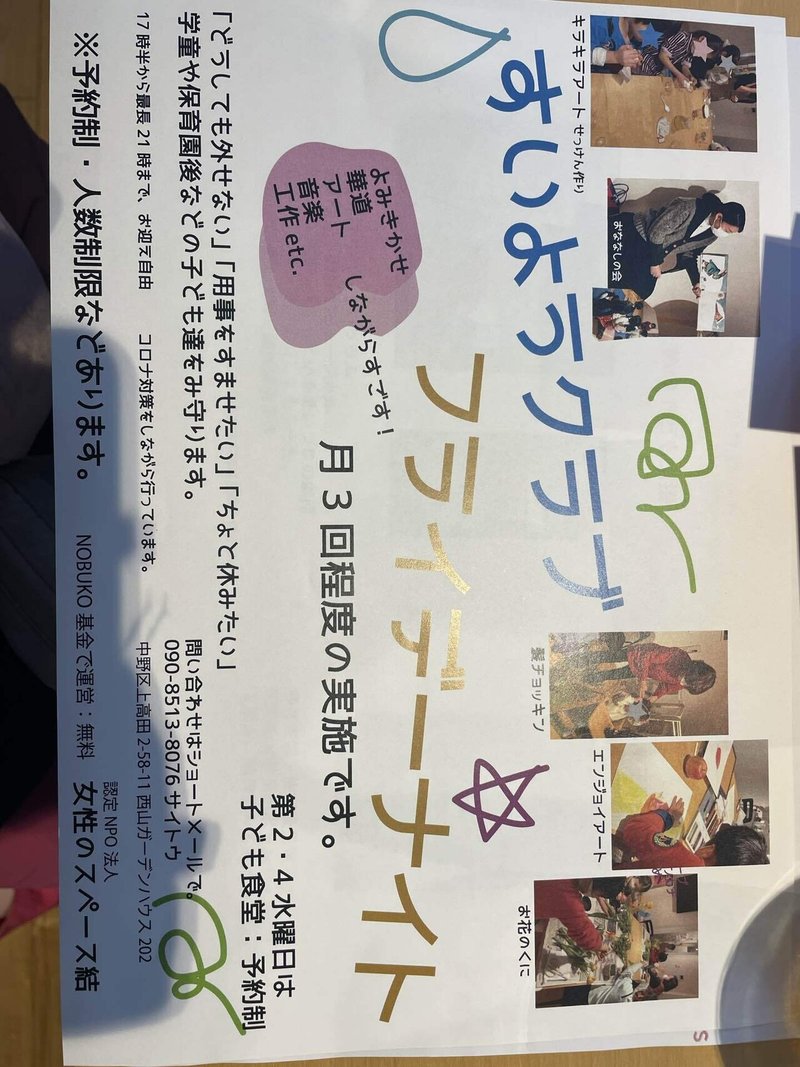 キラキラアート せっけん作り
おななしの会
髪チョッキン
エンジョイアート
お花のくに
すいようクラブ
フライデーナイト
よみきかせ
華道
アート
音楽
工作 etc.
しながらすごす!
月3回程度の実施です。
第2・4水曜日は
子ども食堂:予約制
「どうしても外せない」「用事をすませたい」「ちょと休みたい」
学童や保育園後などの子ども達をみ守ります。
17時半から最長21時まで、お迎え自由
コロナ対策をしながら行っています。
※予約制・人数制限などあります。
問い合わせはショートメールで。
090-8513-8076 サイトウ
中野区上高田 2-58-11 西山ガーデンハウス 202
NOBUKO 基金で運営:無料
認定 NPO 法人
女性のスペース結
S